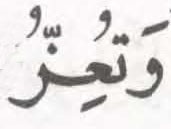 وَتُعِزُّ